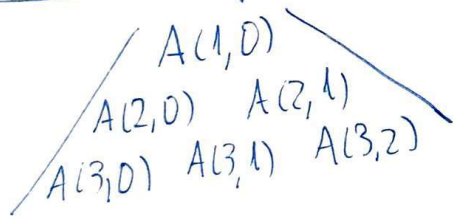 A(1,0)
A(2,0) A(2,1)
A(3,0) A(3,1) A(3,2)